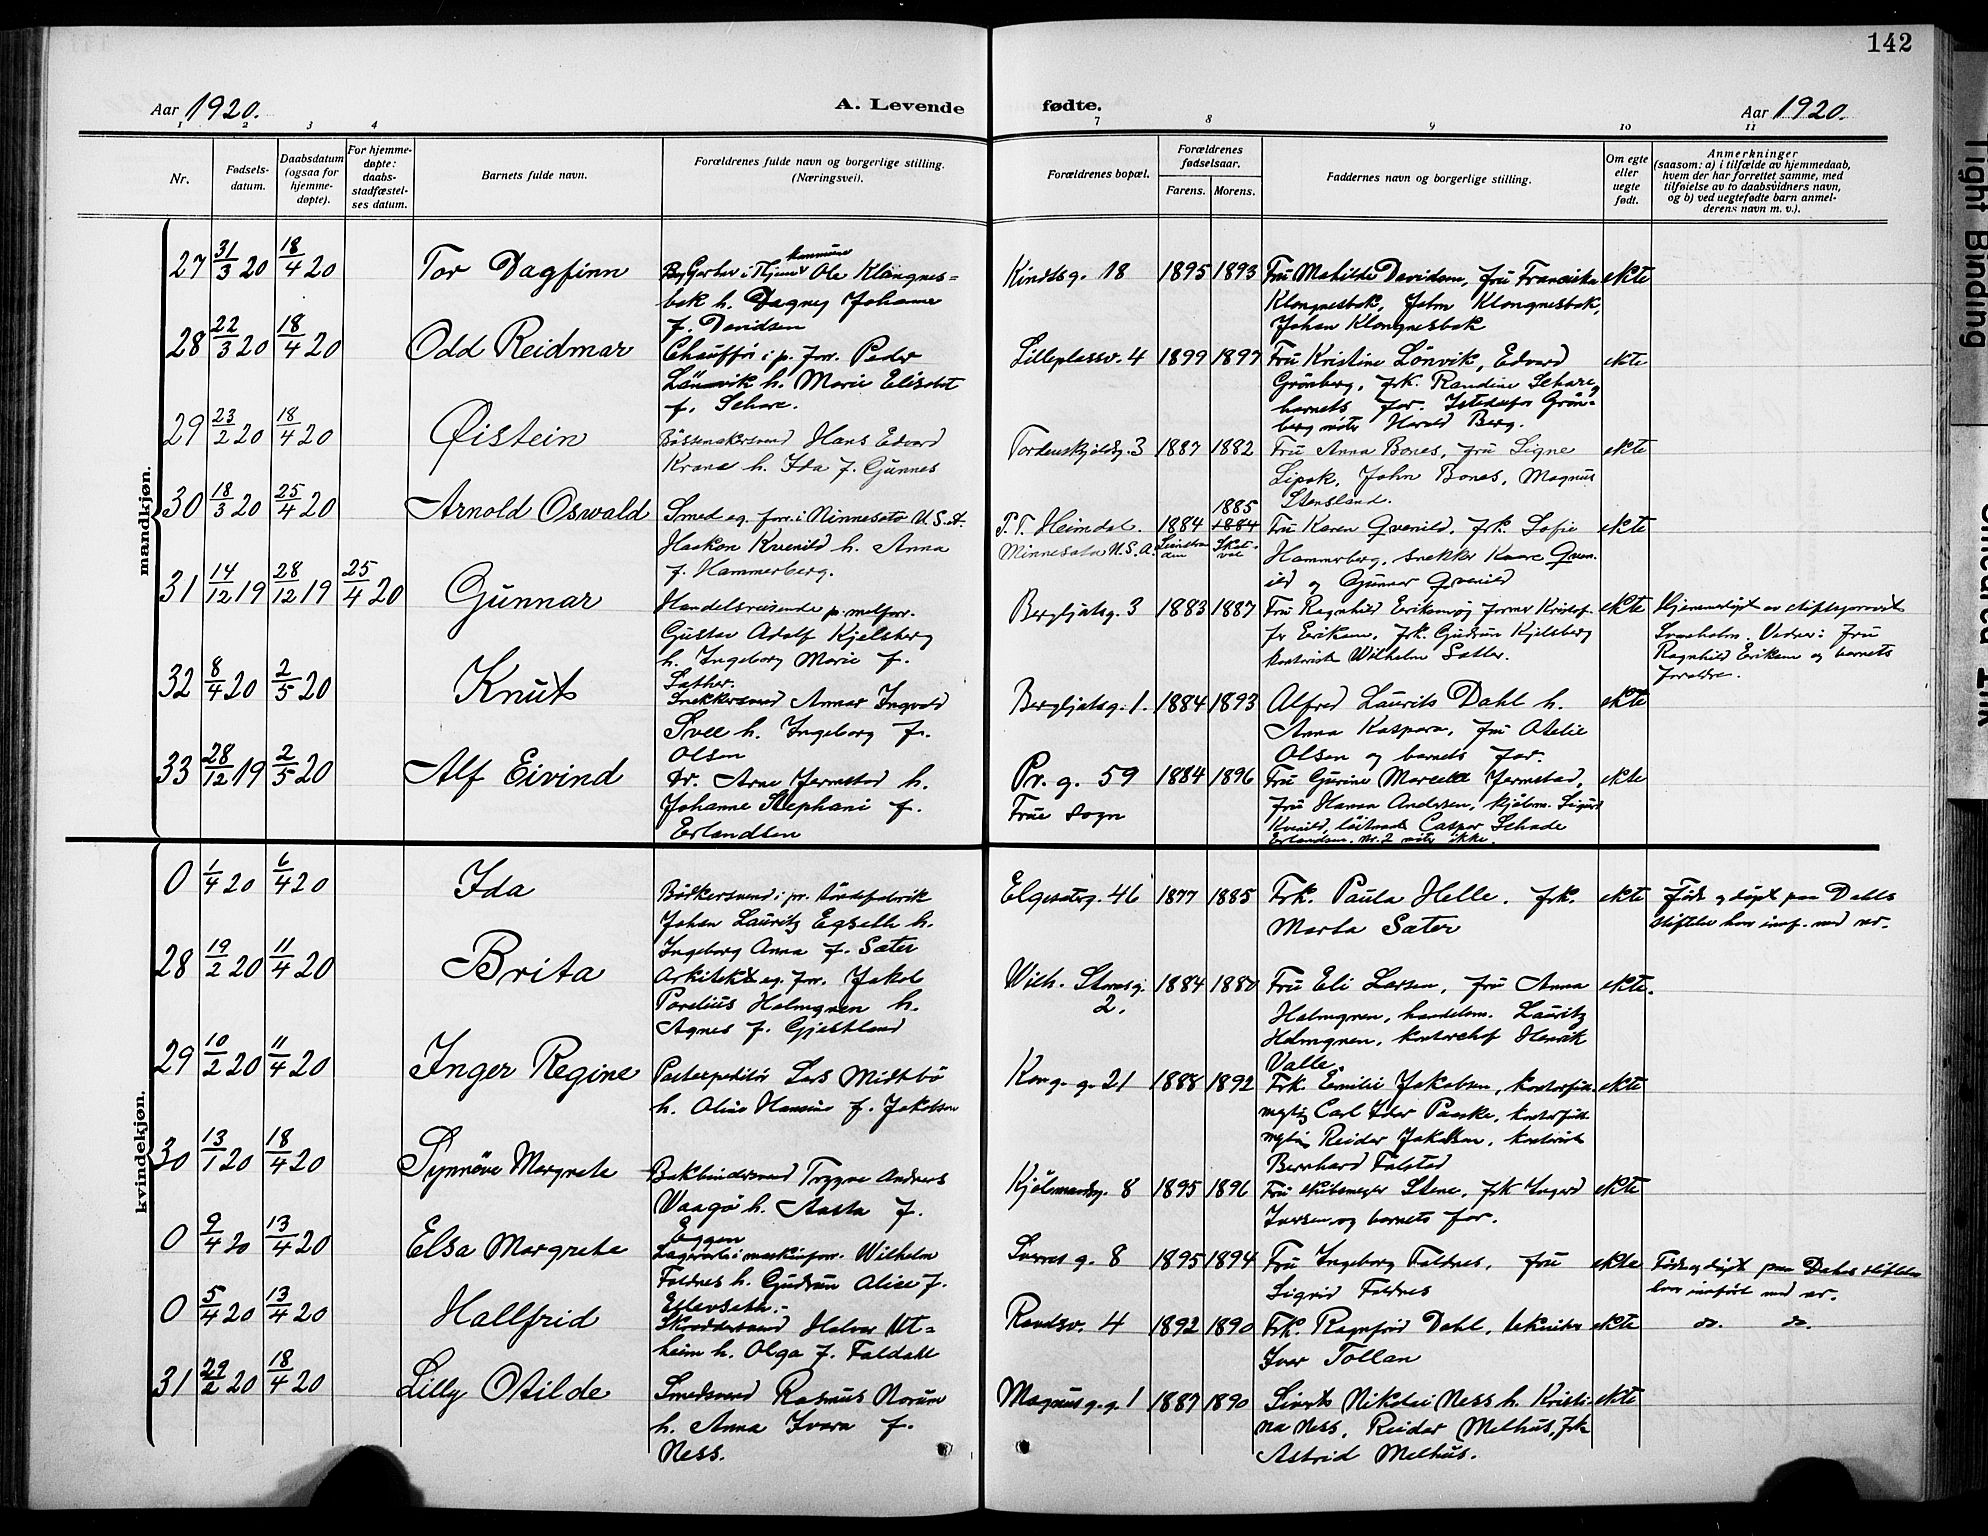 142
Aar 1920.
A. Levende
fødte.
Aar 1920.
1 2 3 4 7 8 9 10 11
Nr.
Fødsels-
datum.
Daabsdatum
(ogsaa for
hjemme-
døpte).
For hjemme-
døpte:
daabs-
stadfæstel-
ses datum.
Barnets fulde navn.
Forældrenes fulde navn og borgerlige stilling.
(Næringsvei).
Forældrenes bopæl.
Forældrenes
fødselsaar.
Farens. Morens.
Faddernes navn og borgerlige stilling.
Om egte
eller
uegte
født.
Anmerkninger
(saasom: a) i tilfælde av hjemmedaab,
hvem der har forrettet samme, med
tilføielse av to daabsvidners navn,
og b) ved uegtefødte barn anmel-
derens navn m. v.).
mandkjøn.
27 31/3 20 18/4 20 Tor Dagfinn
kommune
Ole Klongnes-
bak h. Dagny Johanne
f. Davidsen
Kindtsg. 18 1895 1893
Fru Mathilde Davidsen, fru Franciska
Klongnesbak, John Klongnesbak,
Johan Klongnesbak
ekte
28 22/3 20 18/4 20 Odd Reidmar
Chauffør i p. forr. Peder
Lönvik h. Marie Elisabet
f. Schare.
Lilleplassv. 4 1899 1897
Fru Kristine Lönvik, Edvard
Grönberg, frk. Randine Schare,
barnets far. Istedenfor Grön-
berg möter Harald Berg.
ekte
29 23/2 20 18/4 20 Øistein
Bössemakersvend Hans Edvard
Krane h. Ida f. Gunnes
Tordenskjoldsg. 3 1887 1882
Fru Anna Bones, fru Signe
Lipok, John Bones, Magnus
Stensland.
ekte
30 18/3 20 25/4 20 Arnold Oswald
Smed eg. forr. i Minnesota U.S.A.
Haakon Kvenild h. Anna
f. Hammerberg.
P.T. Heimdal.
Minnesota U.S.A.
1884
1885
1884
Fru Karen Qvenild, frk. Sofie
Hammerberg, snekker Kaare Qven-
ild og Gunnar Qvenild
ekte
31 14/12 19 28/12 19 25/4 20 Gunnar
Handelsreisende p. forr.
Gustav Adolf Kjelsberg
h. Ingeborg Marie f.
Sather.
Bergljotsg. 3 1883 1887
Fru Ragnhild Eriksen og
Eriksen, frk. Gudrun Kjelsberg
Wilhelm Sather.
ekte
Hjemmedøpt av stiftsprovst
Vidner: fru
Ragnhild Eriksen og barnets
forældre.
32 8/4 20 2/5 20 Knut
Snekkersvend Annar Ingvald
Svee h. Ingeborg f.
Olsen
Bergljotsg. 1. 1884 1893
Alfred Laurits Dahl h.
Anna Kaspara, fru Otelie
Olsen og barnets far.
ekte
33 28/12 19 2/5 20 Alf Eivind
Dr. Arne Jermstad h.
Johanne Stephani f.
Erlandsen
Pr. g. 59
Frue sogn
1884 1896
Fru Gurine Marcelle Jermstad,
fru Hanna Andersen, kjøbm. Sigurd
Kvenild, löitnant Caspar Schade
Erlandsen. Nr. 2 möter ikke.
ekte
kvindekjøn.
0 1/4 20 6/4 20 Ida
Bödkersvend i pr.
Johan Lauritz Egseth h.
Ingeborg Anna f. Sæter
Elgesæterg. 46 1877 1885
Frk. Paula Helle. frk.
Marta Sæter
ekte
Født og døpt paa Dahls
stiftelse hvor innf. med nr.
28 19/2 20 11/4 20 Brita
Arkitekt eg. forr. Jakob
Parelius Holmgren h.
Agnes f. Gjestland
Wilh. Stormsg.
2.
1884 1880
Fru Eli Larsen, fru Anna
Holmgren, handelsm. Lauritz
Holmgren, kontorchef Henrik
Valle.
ekte.
29 10/2 20 11/4 20 Inger Regine
Postexpeditör Lars Midtbö
h. Aline Hansine f. Jakobsen
Kong. g. 21 1888 1892
Frk. Emilie Jakobsen, kontorfuld-
mægtig Carl Iver Paaske, kontorfuld-
mægtig Reidar Jakobsen, kontorist
Bernhard Falstad
ekte
30 13/1 20 18/4 20 Synnöve Margrete
Bokbindersvend Trygve Andreas
Vaagö h. Aasta f.
Eggen
Kjölmandsg. 8 1895 1896
Fru Stene, frk Ingerd
Larsen og barnets far.
ekte
0 9/4 20 13/4 20 Elsa Margrete
Lagerarb. i maskinforr. Wilhelm
Foldnes h. Gudrun Alice f.
Ellevseth.
g. 8 1895 1894
Fru Ingeborg Foldnes, fru
Sigrid Foldnes
ekte
Født og døpt paa Dahls stiftelse
hvor innført med nr.
0 5/4 20 13/4 20 Hallfrid
Skreddersvend Halvor Ut-
heim h. Olga f. Faldahl
Rondsv. 4 1892 1890
Frk. Ragnfrid Dahl, tekniker
Ivar Tollan
ekte
do. do.
31 29/2 20 18/4 20 Lilly Otilde
Smedsvend Rasmus Norum
h. Anna Ivara f.
Ness.
Magnus g. 1 1887 1890
Sivert Nikolai Ness h. Kristi-
na Ness, Reidar Melhus, frk
Astrid Melhus.
ekte
Tight Binding